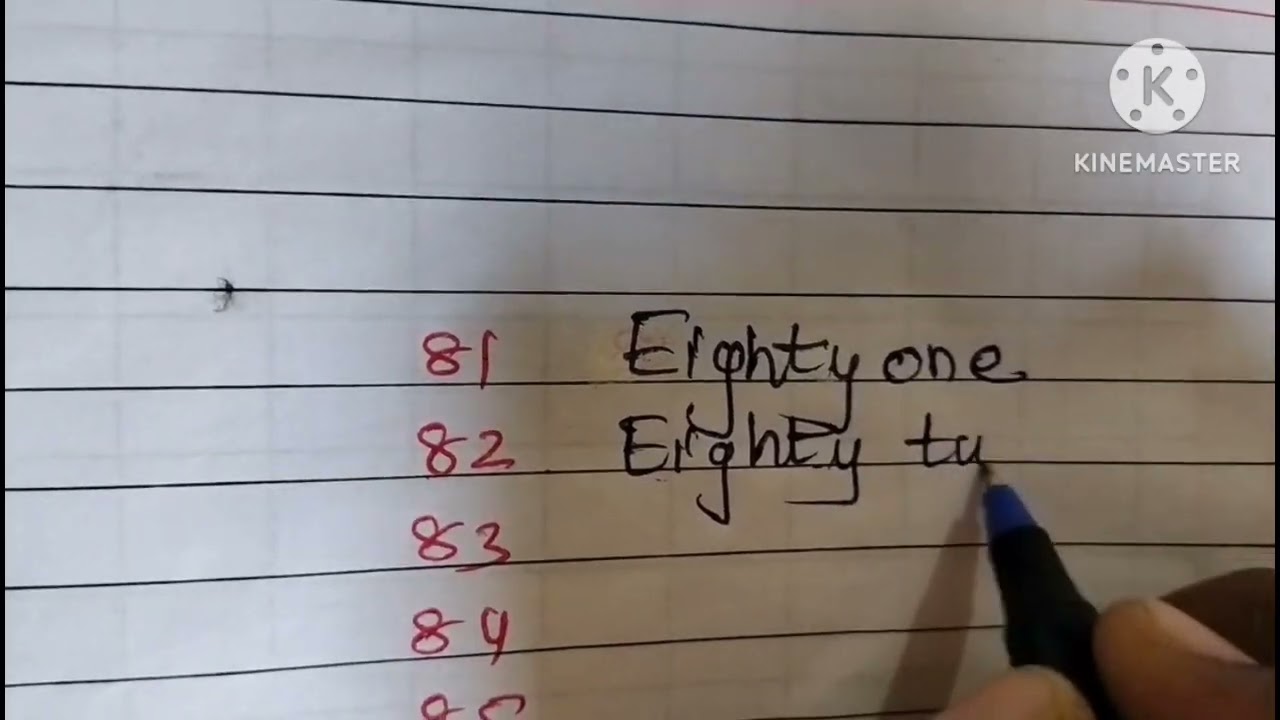 KINEMASTER
81 Eighty one
82 Eighty tu
83
84
85